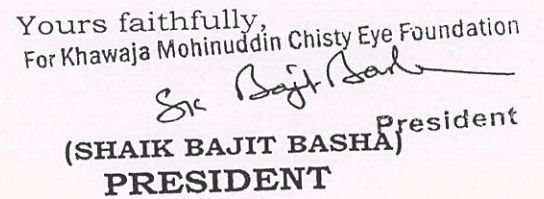 Yours faithfully,
For Khawaja Mohinuddin Chisty Eye Foundation
Sk Bajit Basha
President
(SHAIK BAJIT BASHA)
PRESIDENT